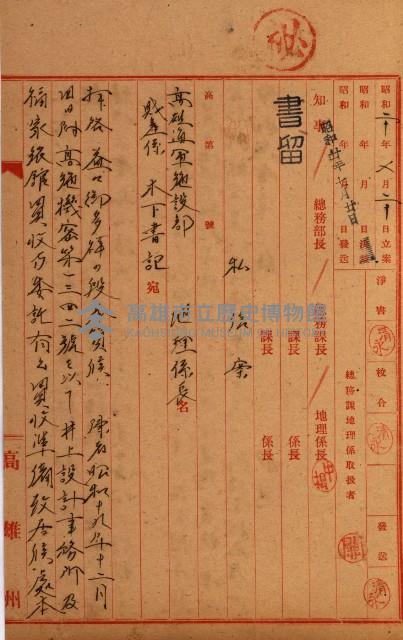 秘
昭和二十年 月二十日立案
昭和 年 月 日決議
昭和 年 月 日發送
昭和廿年 月廿日
淨書
校合
發送
總務課地理係取扱者
書留
知事
總務部長
總務課長
地理係長
課長
係長
課長
係長
私信案
高第 號
地理係長名
高雄海軍施設部
財產係 木下書記宛
拜啓 益々御多祥ノ段
陳者昭和十九年十二月
日附高施機密第一三四二號ヲ以テ井上設計事務所及
買收方委託有之買收準備致居候處本
高雄州
高雄市立歷史博物館
KAOHSIUNG MUSEUM OF HISTORY